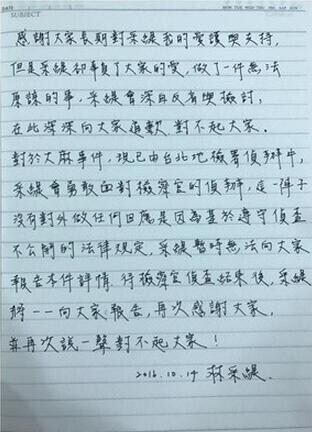 SUBJECT
感謝大家長期對采緹我的愛護與支持,
但是采緹卻辜負了大家的愛,做了一件無法
原諒的事,采緹會深自反省與檢討,
在此深深向大家道歉,對不起大家.
對於大麻事件,現已由台北地檢署偵辦中,
采緹會勇敢面對檢察官的偵辦,這一陣子
沒有對外做任何回應是因為基於遵守偵查
不公開的法律規定,采緹暫時無法向大家
報告本件詳情,待檢察官偵查結束後,采緹
將一一向大家報告,再次感謝大家,
並再次說一聲對不起大家!
2016.10.14 林采緹.